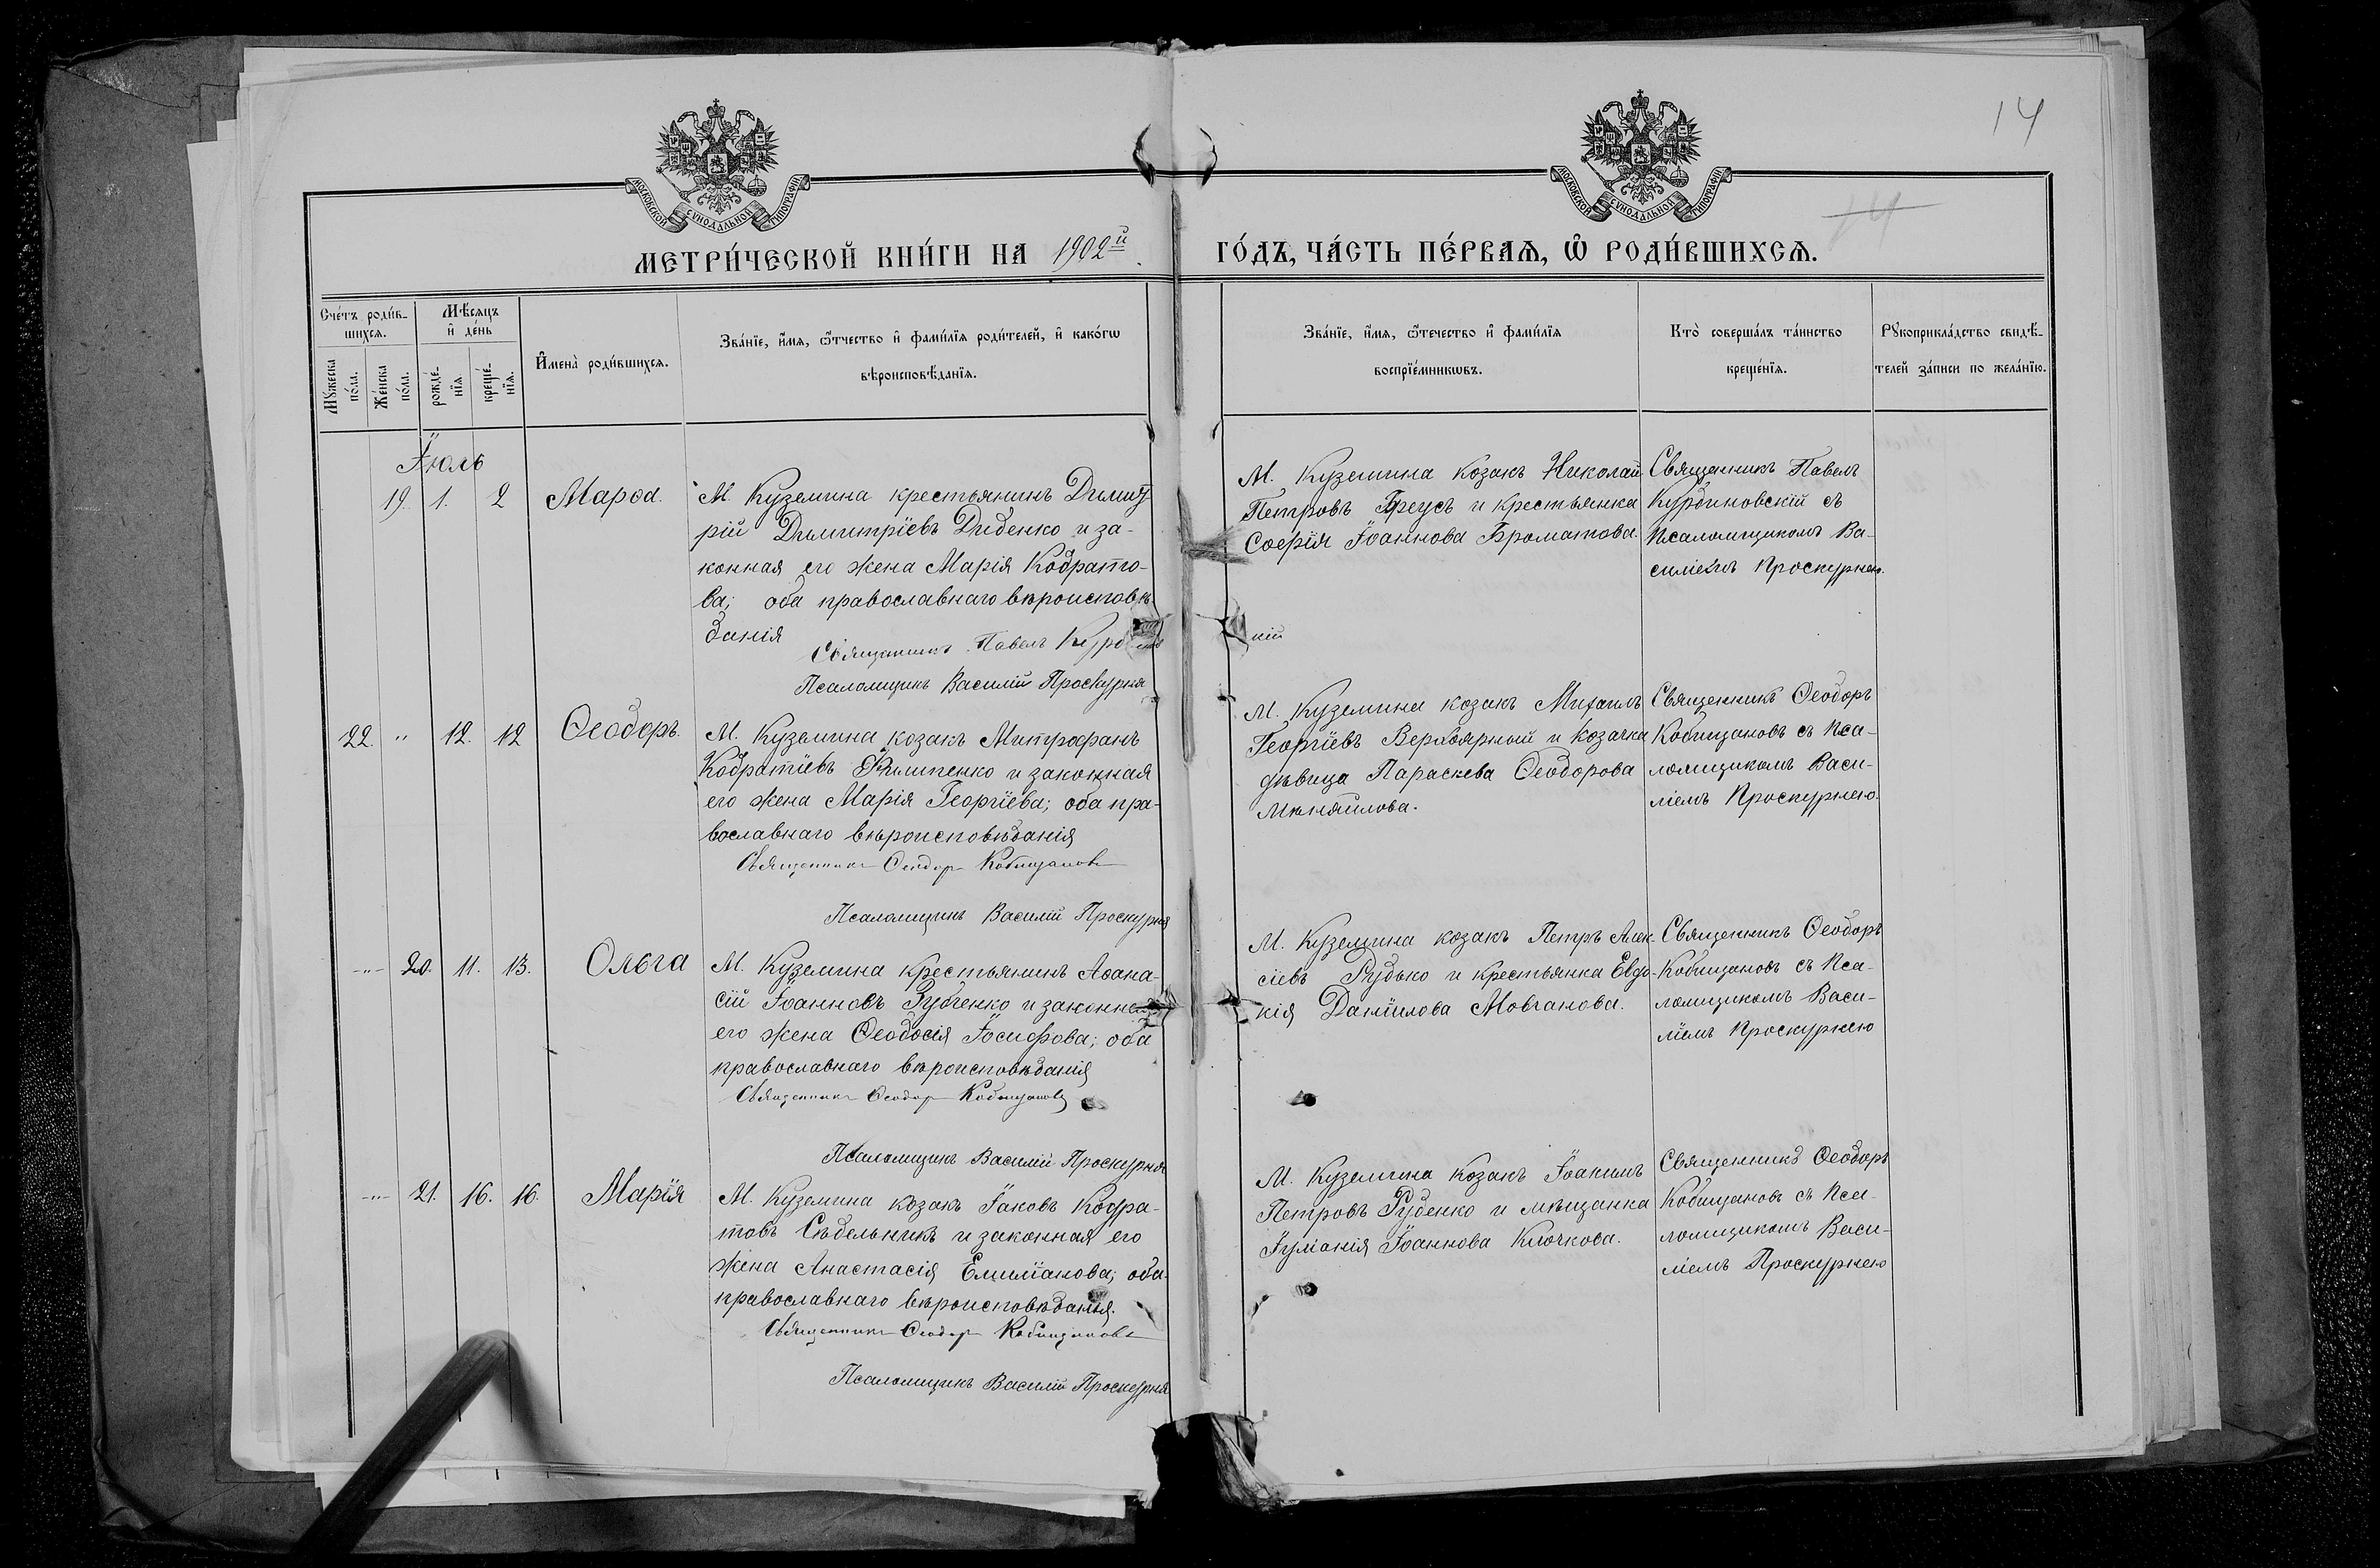 14
14
МОСКОВСКОЙ СУНОДАЛЬНОЙ ТИПОГРАФІИ
МОСКОВСКОЙ СУНОДАЛЬНОЙ ТИПОГРАФІИ
МЕТРИ́ЧЕСКОЙ КНИ́ГИ НА 1902й ГО́ДЪ, ЧА́СТЬ ПЕ́РВАѦ, Ѽ РОДИ́ВШИХСѦ.
Сче́тъ роди́в-
шихсѧ.
Мꙋжеска
по́ла.
Же́нска
по́ла.
Мѣ́сѧцъ
и҆ де́нь
рожде́-
нїѧ.
креще́-
нїѧ.
И҆мена̀ роди́вшихсѧ.
Зва́нїе, и҆́мѧ, ѻ҆́тчество и҆ фами́лїѧ роди́телей, и҆ како́гѡ
вѣроисповѣ́данїѧ.
Зва́нїе, и҆́мѧ, ѻ҆́течество и҆ фами́лїѧ
воспрїе́мникѡвъ.
Кто̀ соверша́лъ та́инство
креще́нїѧ.
Рꙋкоприкла́дство свидѣ́-
телей за́писи по жела́нїю.
Іюль
19. 1. 2 Марѳа.
М. Куземина крестьянинъ Димит
рій Димитріевъ Диденко и за-
конная его жена Марія Кодрато-
ва; оба православнаго вѣроисповѣ
данія
Священникъ Павелъ
кій
Псаломщикъ Василій Проскурня
М. Куземина козакъ Николай
Петровъ Греусъ и крестьянка
Софія Іоаннова Броматова.
Священникъ Павелъ
Курдиновскій съ
Псаломщикомъ Ва-
силіемъ Проскурнею.
22. " 12. 12 Ѳеодоръ.
М. Куземина козакъ Митрофанъ
Кодратіевъ Филипенко и законная
его жена Марія Георгіева; оба пра-
вославнаго вѣроисповѣданія
Священникъ Ѳеодоръ Кобищановъ
Псаломщикъ Василій Проскурня
М. Куземина козакъ Михаилъ
Георгіевъ Верхоярный и козачка
дѣвица Параскева Ѳеодорова
Мѣняйлова.
Священникъ Ѳеодоръ
Кобищановъ съ Пса-
ломщикомъ Васи-
ліемъ Проскурнею.
-"- 20. 11. 13. Ольга
М. Куземина крестьянинъ Аѳана-
сій Іоанновъ Рубченко и законная
его жена Ѳеодосія Іосифова; оба
православнаго вѣроисповѣданія
Священникъ Ѳеодоръ Кобищановъ
Псаломщикъ Василій Проскурня
М. Куземина козакъ Петръ Алек-
сіевъ Рудько и крестьянка Евдо-
кія Даніилова Мовчанова.
Священникъ Ѳеодоръ
Кобищановъ съ Пса-
ломщикомъ Васи-
ліемъ Проскурнею
-"- 21. 16. 16. Марія
М. Куземина козакъ Іаковъ Кодра-
товъ Сѣдельникъ и законная его
жена Анастасія Емиліанова; оба
православнаго вѣроисповѣданія.
Священникъ Ѳеодоръ Кобищановъ
Псаломщикъ Василій Проскурня
М. Куземина козакъ Іоакимъ
Петровъ Руденко и мѣщанка
Іуліанія Іоаннова Клочкова.
Священникъ Ѳеодоръ
Кобищановъ съ Пса-
ломщикомъ Васи-
ліемъ Проскурнею